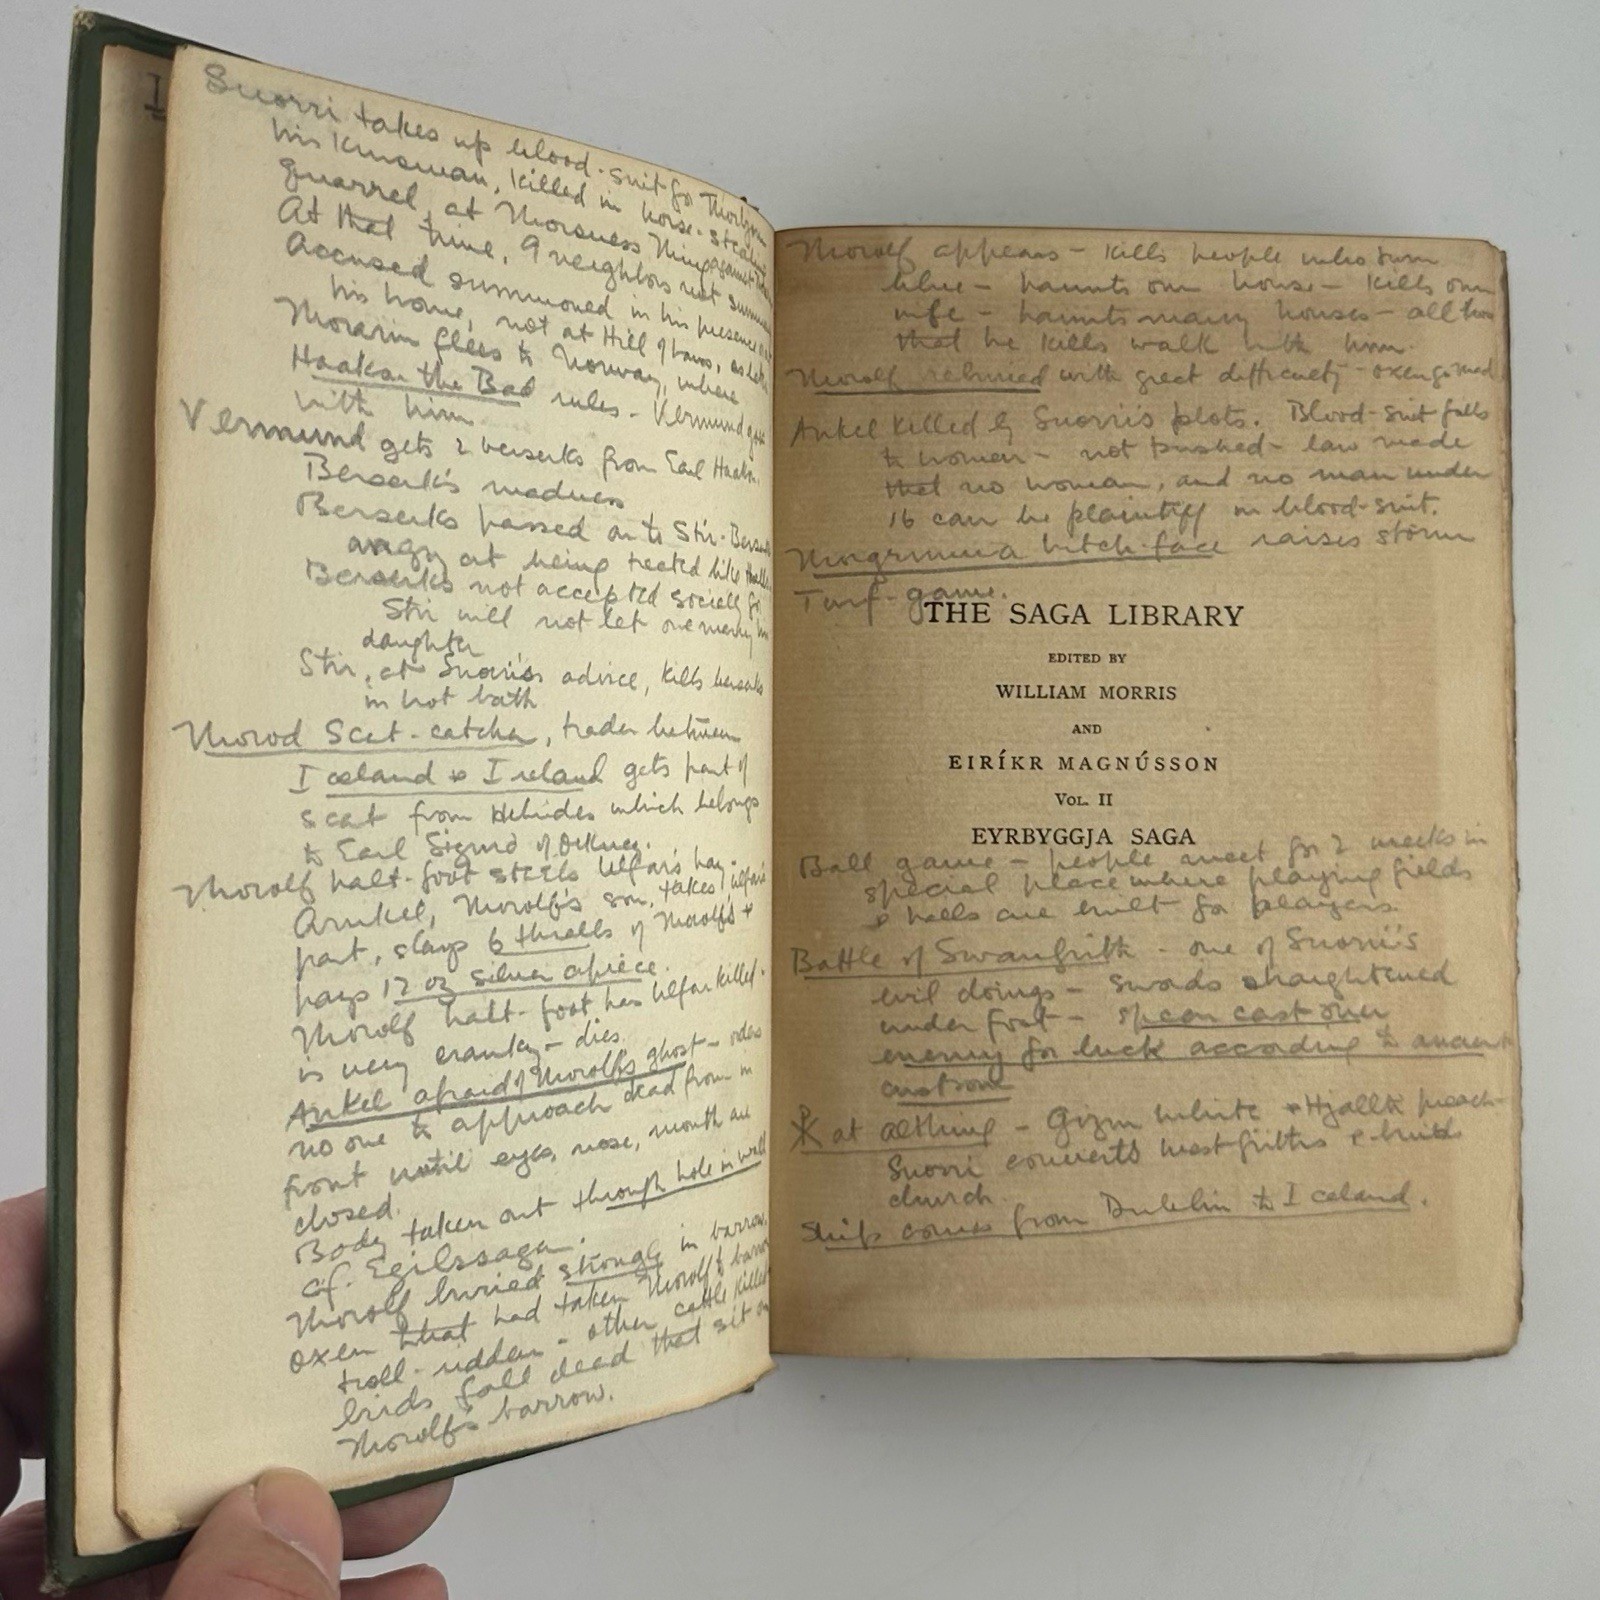 Snorri takes up blood-suit for Thorbiorn
his kinsman, killed in horse-stealing
quarrel, at Thorsness Thing against
At that time, 9 neighbors not summoned
Accused summoned in his presence at
his home, not at Hill of Laws, as later
Thorarin flees to Norway, where
Haakon the Bad rules - Vermund goes
with him
Vermund gets 2 berserks from Earl Haakon.
Berserk's madness
Berserks passed on to Stir - Berserks
angry at being treated like thralls
Berserks not accepted socially for
Stir will not let one marry his
daughter
Stir, at Snorri's advice, kills berserks
in hot bath
Thorod Scat-catcher, trader between
Iceland & Ireland gets part of
scat from Hebrides which belongs
to Earl Sigurd of Orkney.
Thorolf halt-foot steals Ulfar's hay.
Arnkel, Thorolf's son, takes Ulfar's
part, slays 6 thralls of Thorolf's &
pays 12 oz silver apiece.
Thorolf halt-foot has Ulfar killed.
is very cranky - dies.
Arnkel afraid of Thorolf's ghost - orders
no one to approach dead from in
front until eyes, nose, mouth are
closed.
Body taken out through hole in wall
cf. Egilssaga.
Thorolf buried strongly in barrow.
oxen that had taken Thorolf to barrow
troll-ridden - other cattle killed
birds fall dead that sit on
Thorolf's barrow.
Thorolf appears - kills people who turn
blue - haunts own house - kills own
wife - haunts many houses - all those
that he kills walk with him.
Thorolf reburied with great difficulty - oxen go mad
Arnkel killed by Snorri's plots. Blood-suit falls
to women - not pushed - law made
that no woman, and no man under
16 can be plaintiff in blood-suit.
Thorgrimma Witch-face raises storm
Turf-game.
THE SAGA LIBRARY
EDITED BY
WILLIAM MORRIS
AND
EIRÍKR MAGNÚSSON
VOL. II
EYRBYGGJA SAGA
Ball game - people meet for 2 weeks in
special place where playing fields
& halls are built for players.
Battle of Swanfrith - one of Snorri's
evil doings - swords straightened
under foot - spear cast over
enemy for luck according to ancient
custom
at althing - Gizur white & Hjallti preach -
Snorri converts westfirths & builds
church.
Ship comes from Dublin to Iceland.